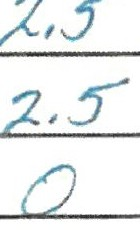 2.5
2.5
0